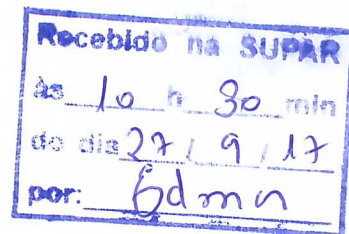 Recebido na SUPAR
às 10 h 30 min
do dia 27 / 9 / 17
por: Edma